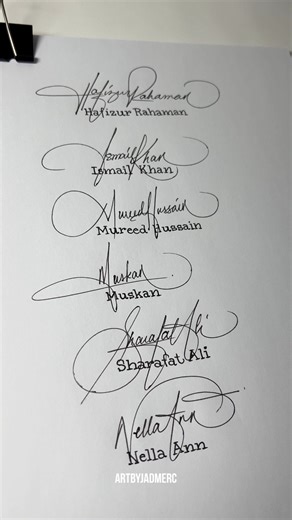 Hafizur Rahaman
Hafizur Rahaman
Ismail Khan
Ismail Khan
Mureed Hussain
Mureed Hussain
Muskan
Muskan
Sharafat Ali
Sharafat Ali
Nella Ann
Nella Ann
ARTBYJADMERC